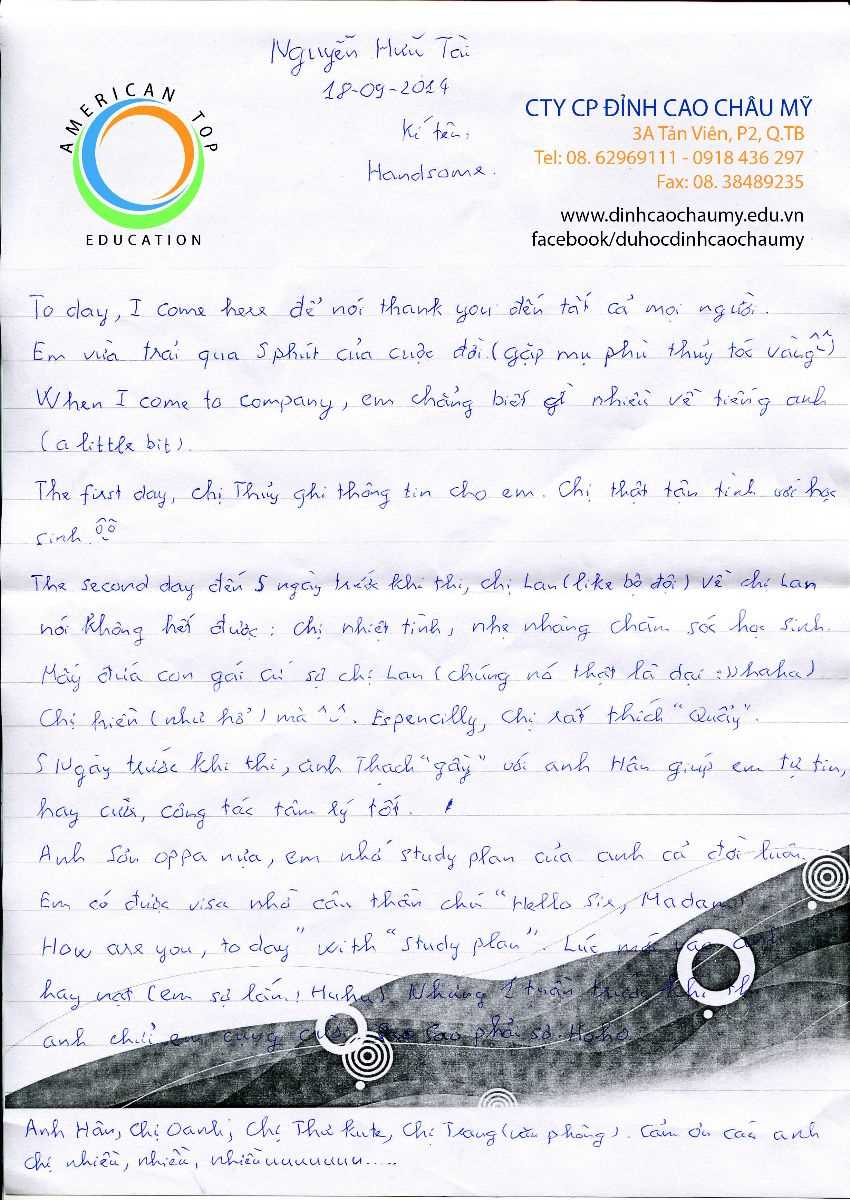 Nguyễn Hữu Tài
18-09-2014
Kí tên:
Handsome.
AMERICAN TOP
EDUCATION
CTY CP ĐỈNH CAO CHÂU MỸ
3A Tản Viên, P2, Q.TB
Tel: 08. 62969111 - 0918 436 297
Fax: 08. 38489235
www.dinhcaochaumy.edu.vn
facebook/duhocdinhcaochaumy
To day, I come here để nói thank you đến tất cả mọi người.
Em vừa trải qua 5 phút của cuộc đời (gặp mụ phù thủy tóc vàng ^^)
When I come to company, em chẳng biết gì nhiều về tiếng anh
(a little bit).
The first day, chị Thủy ghi thông tin cho em. Chị thật tận tình với học
sinh.
The second day đến 5 ngày trước khi thi, chị Lan (like bộ đội) về chị Lan
nói không hết được: chị nhiệt tình, nhẹ nhàng chăm sóc học sinh.
Mấy đứa con gái cứ sợ chị Lan (chúng nó thật là dại :)) haha)
Chị hiền (như hổ) mà ^^. Espencilly, chị rất thích "Quẩy".
5 Ngày trước khi thi, anh Thạch "gầy" với anh Hân giúp em tự tin,
hay cười, công tác tâm lý tốt.
Anh Sơn oppa nựa, em nhớ study plan của anh cả đời luôn.
Em có được visa nhờ câu thần chú "Hello Sir, Madam
How are you, to day" with "study plan". Lúc mới vào anh
hay nạt (em sợ lắm, Huhu). Nhưng 1 tuần trước khi
anh chửi em cũng cười sao phải sợ. Hoho
Anh Hân, chị Oanh, Chị Thư kute, Chị Trang (văn phòng). Cảm ơn các anh
chị nhiều, nhiều, nhiềuuuuuuuu.....